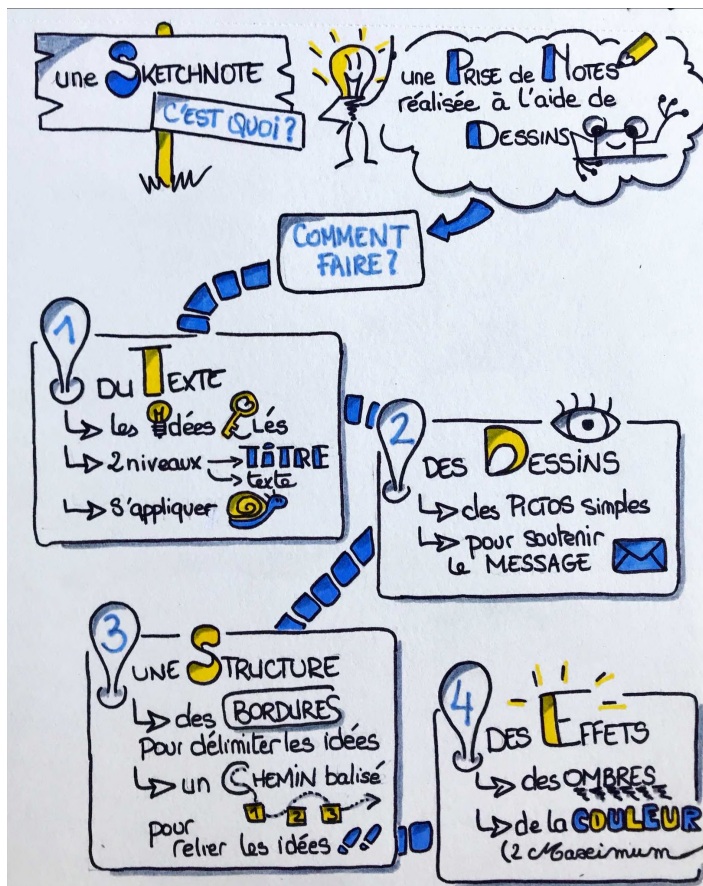 une SKETCHNOTE
C'EST QUOI?
une PRISE de NOTES
réalisée à l'aide de
DESSINS
COMMENT
FAIRE?
1
DU TEXTE
les idées clés
2 niveaux → TITRE
texte
s'appliquer
2
DES DESSINS
des PICTOS simples
pour soutenir
le MESSAGE
3
UNE STRUCTURE
des BORDURES
pour délimiter les idées
un CHEMIN balisé
1 2 3
pour
relier les idées
4
DES EFFETS
des OMBRES
de la COULEUR
(2 Maximum